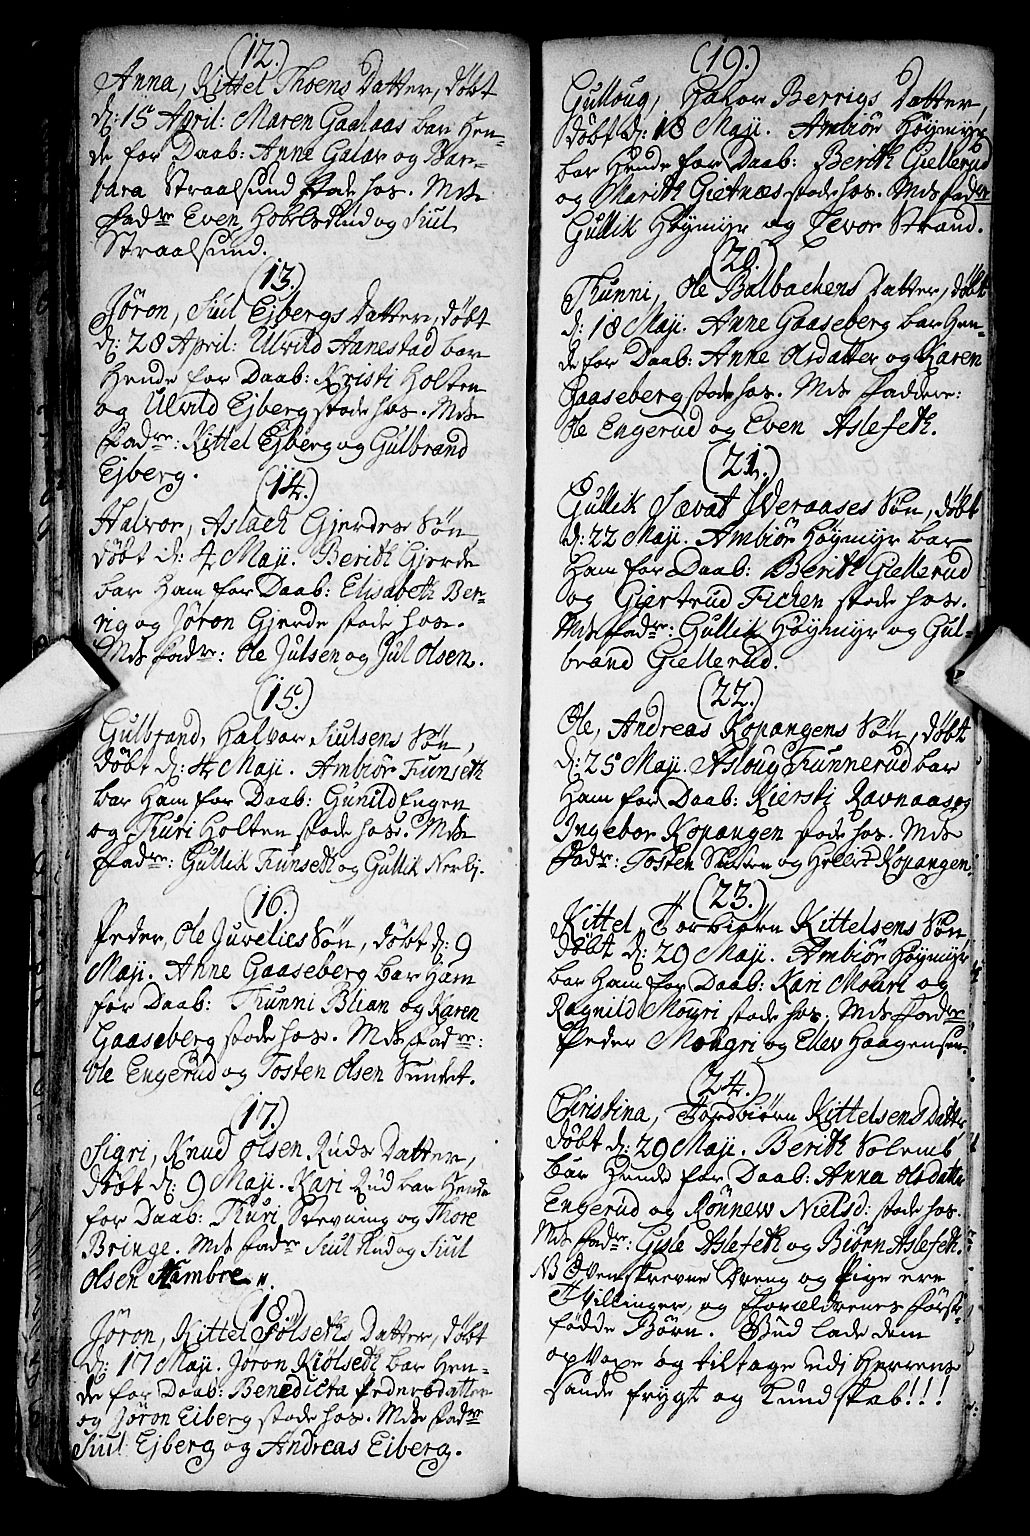 (12.)
Anna, Kittel Thoens Datter, døbt
d: 15 April: Maren Gaalaas bar Hen-
de for Daab: Anne Galaas og Bar-
bara Straalsund stode hos. Mds
fadre Even Hobelsrud og Siul
Straalsund.
(13.)
Jøron, Siul Ejbergs Datter, døbt
d: 28 April: Ulvild Aanestad bar
Hende for Daab: Kristi Holten
og Ulvild Ejberg stode hos. Mds
fadre: Kittel Ejberg og Gulbrand
Ejberg.
(14.)
Halvor, Aslach Gjerdes Søn,
døbt d: 4 Maji. Berith Gjerde
bar Ham for Daab: Elisabeth Ber-
rig og Jøron Gjerde stode hos.
Mds fadre: Ole Julsen og Jul Olsen.
(15.)
Gulbrand, Halvor Siulsens Søn,
døbt d: 4 Maji. Ambiør Funseth
bar Ham for Daab: Gunild Engen
og Thuri Holten stode hos. Mds
fadre: Gullik Funseth og Gullik Nerbj.
(16.)
Peder, Ole Juvelies Søn, døbt d: 9
Maji. Anne Gaaseberg bar Ham
for Daab: Thunni Blian og Karen
Gaaseberg stode hos. Mds fadre:
Ole Engerud og Tosten Olsen Sundet.
(17.)
Sigri, Knud Olsen Ruds Datter,
døbt d: 9 Maji. Kari Rud bar Hende
for Daab: Thuri Stevning og Thore
Bringe. Mds fadre Siul Rud og Siul
Olsen Nambre.
(18.)
Jøron, Kittel Følseths Datter, døbt
d: 17 Maji. Jøron Kiølseth bar Hen-
de for Daab: Benedicta Pedersdatter
og Jøron Eiberg stode hos. Mds fadre
Siul Ejberg og Andreas Eiberg.
(19.)
Gulloug, Halvor Berrigs Datter,
døbt d: 18 Maji. Ambiør Høymyr
bar Hende for Daab: Berith Giellerud
og Marith Gietnæs stode hos. Mds fadre
Gullik Høymyr og Tevor Strand.
(20.)
Thunni, Ole Balbachens Datter, døbt
d: 18 Maji. Anne Gaaseberg bar Hen-
de for Daab: Anne Olsdatter og Karen
Gaaseberg stode hos. Mds faddere:
Ole Engerud og Even Aslefeth.
(21.)
Gullik Sævat Yderaases Søn, døbt
d: 22 Maji. Ambiør Høymyr bar
Ham for Daab: Berith Giellerud
og Giertrud Tichen stode hos.
Mds fadre: Gullik Høymyr og Gul-
brand Giellerud.
(22.)
Ole, Andreas Kopangens Søn, døbt
d: 25 Maji. Asloug Funnerud bar
Ham for Daab: Kiersti Ravnaas og
Ingebor Kopangen stode hos. Mds
fadre: Tosten og Hellvid Kopangen.
(23.)
Kittel, Torbiørn Kittelsens Søn
døbt d: 29 Maji. Ambiør Høymyr
bar Ham for Daab: Kari Mouri og
Ragnild Mouri stode hos; Mds fadre
Peder Mougri og Ellev Haagensen.
(24.)
Christina, Tordbiørn Kittelsens Datter
døbt d: 29 Maji. Berith Solemb
bar Hende for Daab: Anna Olsdatter
Engerud og Rønnew Nielsd: stode hos.
Mds fadr: Gisle Aslefeth og Biørn Aslefeth.
NB Ovenskrevne Dreng og Pige ere
Tvillinger, og Forældrenes først-
fødde Børn. Gud lade dem
opvoxe og tiltage udi Herrens
sande frygt og Kundskab!!!